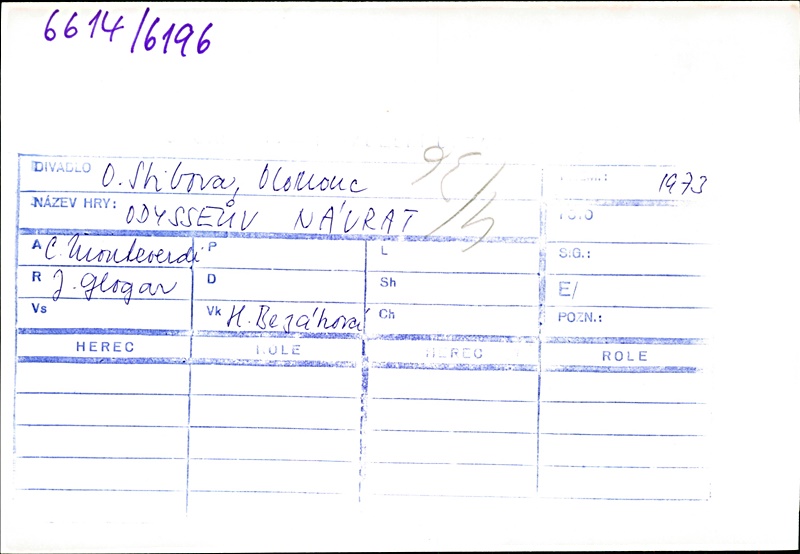 6614/6196
DIVADLO O. Stibora, Olomouc
1973
NÁZEV HRY: ODYSSEŮV NÁVRAT
FOTO
A C. Monteverdi P L S.G.:
R J. Glogar D Sh E/
Vs Vk H. Bezáková Ch POZN.:
HEREC ROLE HEREC ROLE